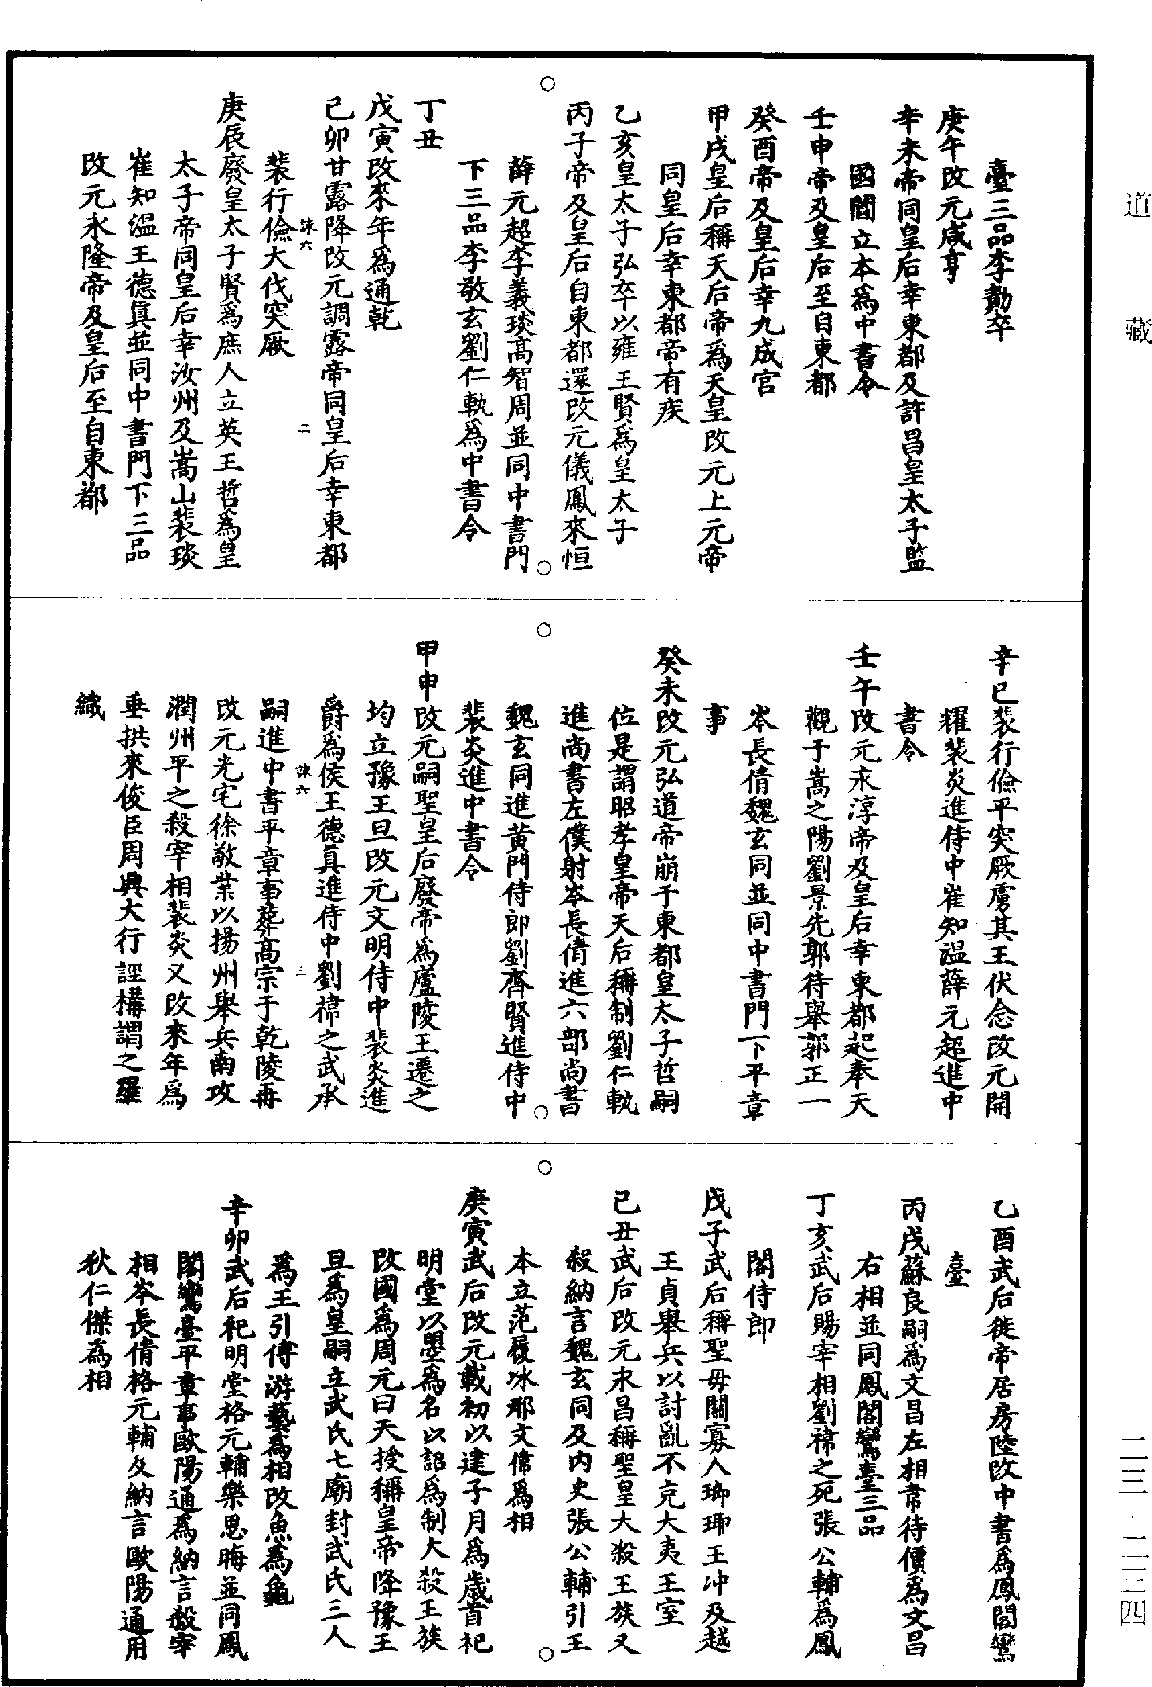 道藏
臺三品李勣卒
庚午改元咸亨
辛未帝同皇后幸東都及許昌皇太子監
國閻立本為中書令
壬申帝及皇后至自東都
癸酉帝及皇后幸九成宮
甲戌皇后稱天后帝為天皇改元上元帝
同皇后幸東都帝有疾
乙亥皇太子弘卒以雍王賢為皇太子
丙子帝及皇后自東都還改元儀鳳來恒
薛元超李義琰高智周並同中書門
下三品李敬玄劉仁軌為中書令
丁丑
戊寅改來年為通乾
己卯甘露降改元調露帝同皇后幸東都
誄六 二
裴行儉大伐突厥
庚辰廢皇太子賢為庶人立英王哲為皇
太子帝同皇后幸汝州及嵩山裴琰
崔知溫王德真並同中書門下三品
改元永隆帝及皇后至自東都
辛巳裴行儉平突厥虜其王伏念改元開
耀裴炎進侍中崔知溫薛元超進中
書令
壬午改元永淳帝及皇后幸東都起奉天
觀于嵩之陽劉景先郭待舉郭正一
岑長倩魏玄同並同中書門下平章
事
癸未改元弘道帝崩于東都皇太子哲嗣
位是謂昭孝皇帝天后稱制劉仁軌
進尚書左僕射岑長倩進六部尚書
魏玄同進黃門侍郎劉齊賢進侍中
裴炎進中書令
甲申改元嗣聖皇后廢帝為廬陵王遷之
均立豫王旦改元文明侍中裴炎進
爵為侯王德真進侍中劉禕之武承
誄六 三
嗣進中書平章事葬高宗于乾陵再
改元光宅徐敬業以揚州舉兵南攻
潤州平之殺宰相裴炎又改來年爲
垂拱來俊臣周興大行誣構謂之羅
織
乙酉武后徙帝居房陵改中書為鳳閣鸞
臺
丙戌蘇良嗣為文昌左相韋待價為文昌
右相並同鳳閣鸞臺三品
丁亥武后賜宰相劉禕之死張公輔為鳳
閣侍郎
戊子武后稱聖母關寡人瑯琊王冲及越
王貞舉兵以討亂不克大夷王室
己丑武后改元永昌稱聖皇大殺王族又
殺納言魏玄同及內史張公輔引王
本立范履冰邢文偉為相
庚寅武后改元載初以建子月為歲首祀
明堂以曌為名以詔為制大殺王族
改國為周元曰天授稱皇帝降豫王
旦為皇嗣立武氏七廟封武氏三人
為王引傅游藝為相改魚為龜
辛卯武后祀明堂格元輔樂思晦並同鳳
閣鸞臺平章事歐陽通為納言殺宰
相岑長倩格元輔及納言歐陽通用
狄仁傑為相
二三·二三四